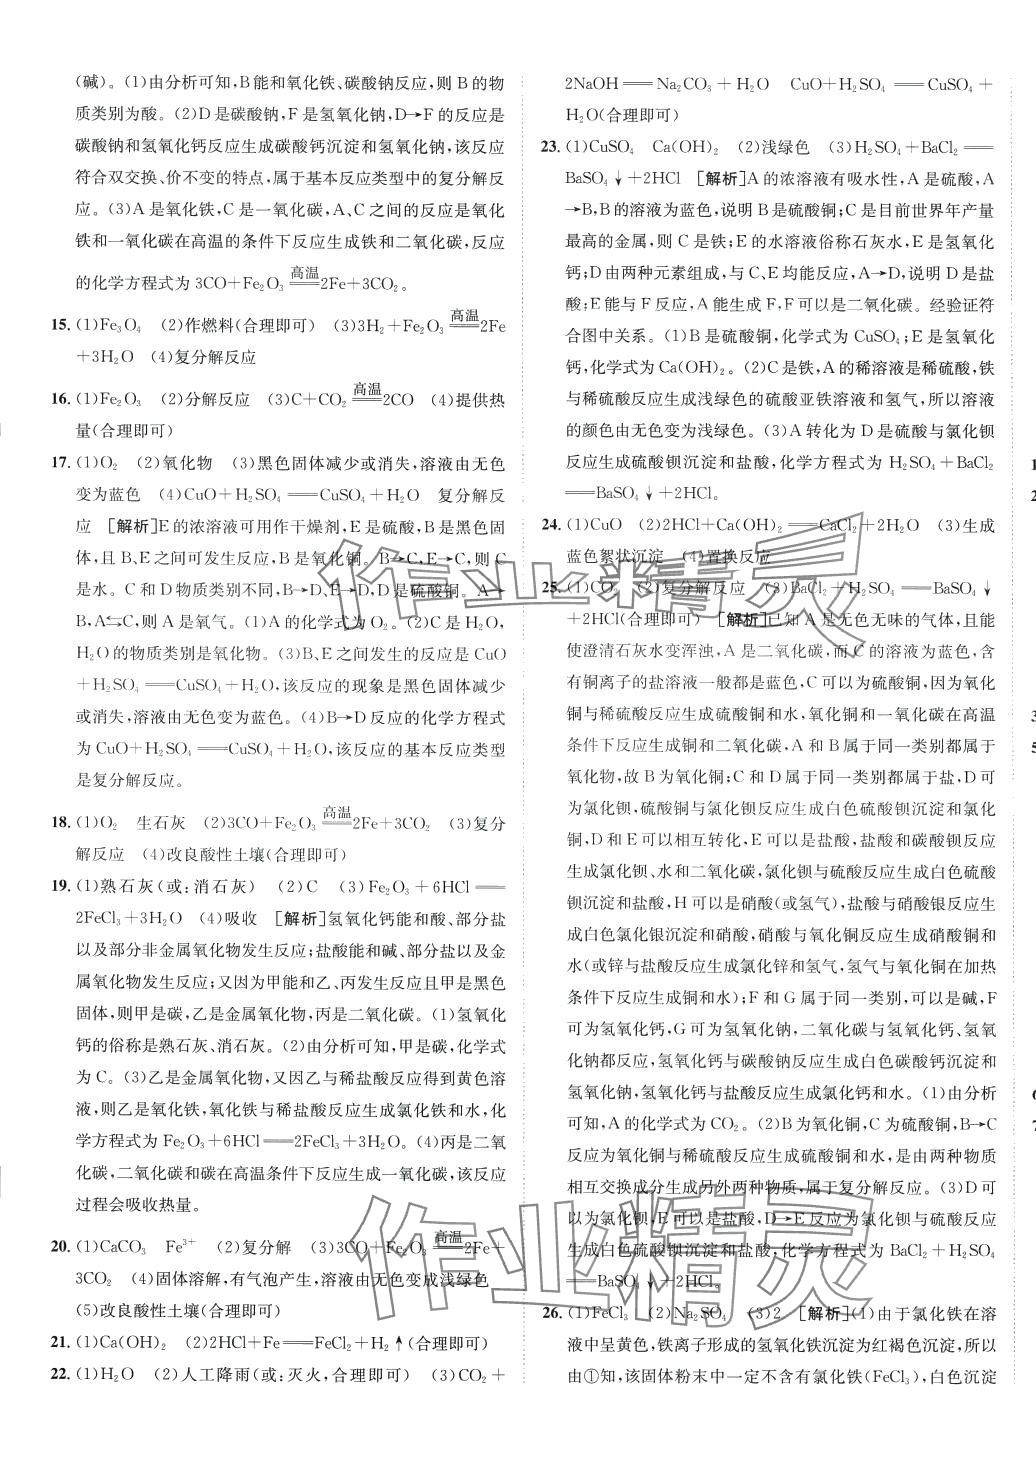 (碱)。(1)由分析可知,B能和氧化铁、碳酸钠反应,则B的物
质类别为酸。(2)D是碳酸钠,F是氢氧化钙,D→F的反应是
碳酸钠和氢氧化钙反应生成碳酸钙沉淀和氢氧化钠,该反应
符合双交换、价不变的特点,属于基本反应类型中的复分解反
应。(3)A是氧化铁,C是一氧化碳,A、C之间的反应是氧化
铁和一氧化碳在高温的条件下反应生成铁和二氧化碳,反应
的化学方程式为3CO+Fe₂O₃ ══高温══ 2Fe+3CO₂。
15. (1)Fe₃O₄ (2)作燃料(合理即可) (3)3H₂+Fe₂O₃ ══高温══ 2Fe
+3H₂O (4)复分解反应
16. (1)Fe₂O₃ (2)分解反应 (3)C+CO₂ ══高温══ 2CO (4)提供热
量(合理即可)
17. (1)O₂ (2)氧化物 (3)黑色固体减少或消失,溶液由无色
变为蓝色 (4)CuO+H₂SO₄══CuSO₄+H₂O 复分解反
应 [解析]E的浓溶液可用作干燥剂,E是硫酸,B是黑色固
体,且B、E之间可发生反应,B是氧化铜。B→C,E→C,则C
是水。C和D物质类别不同,B→D、E→D,D是硫酸铜。A→
B,A⇆C,则A是氧气。(1)A的化学式为O₂。(2)C是H₂O,
H₂O的物质类别是氧化物。(3)B、E之间发生的反应是CuO
+H₂SO₄══CuSO₄+H₂O,该反应的现象是黑色固体减少
或消失,溶液由无色变为蓝色。(4)B→D反应的化学方程式
为CuO+H₂SO₄══CuSO₄+H₂O,该反应的基本反应类型
是复分解反应。
18. (1)O₂ 生石灰 (2)3CO+Fe₂O₃ ══高温══ 2Fe+3CO₂ (3)复分
解反应 (4)改良酸性土壤(合理即可)
19. (1)熟石灰(或:消石灰) (2)C (3)Fe₂O₃+6HCl══
2FeCl₃+3H₂O (4)吸收 [解析]氢氧化钙能和酸、部分盐
以及部分非金属氧化物发生反应;盐酸能和碱、部分盐以及金
属氧化物发生反应;又因为甲能和乙、丙发生反应且甲是黑色
固体,则甲是碳,乙是金属氧化物,丙是二氧化碳。(1)氢氧化
钙的俗称是熟石灰、消石灰。(2)由分析可知,甲是碳,化学式
为C。(3)乙是金属氧化物,又因乙与稀盐酸反应得到黄色溶
液,则乙是氧化铁,氧化铁与稀盐酸反应生成氯化铁和水,化
学方程式为Fe₂O₃+6HCl══2FeCl₃+3H₂O。(4)丙是二氧
化碳,二氧化碳和碳在高温条件下反应生成一氧化碳,该反应
过程会吸收热量。
20. (1)CaCO₃ Fe³⁺ (2)复分解 (3)3CO+Fe₂O₃ ══高温══ 2Fe+
3CO₂ (4)固体溶解,有气泡产生,溶液由无色变成浅绿色
(5)改良酸性土壤(合理即可)
21. (1)Ca(OH)₂ (2)2HCl+Fe══FeCl₂+H₂↑(合理即可)
22. (1)H₂O (2)人工降雨(或:灭火,合理即可) (3)CO₂+
2NaOH══Na₂CO₃+H₂O CuO+H₂SO₄══CuSO₄+
H₂O(合理即可)
23. (1)CuSO₄ Ca(OH)₂ (2)浅绿色 (3)H₂SO₄+BaCl₂══
BaSO₄↓+2HCl [解析]A的浓溶液有吸水性,A是硫酸,A
→B,B的溶液为蓝色,说明B是硫酸铜;C是目前世界年产量
最高的金属,则C是铁;E的水溶液俗称石灰水,E是氢氧化
钙;D由两种元素组成,与C、E均能反应,A→D,说明D是盐
酸;E能与F反应,A能生成F,F可以是二氧化碳。经验证符
合图中关系。(1)B是硫酸铜,化学式为CuSO₄;E是氢氧化
钙,化学式为Ca(OH)₂。(2)C是铁,A的稀溶液是稀硫酸,铁
与稀硫酸反应生成浅绿色的硫酸亚铁溶液和氢气,所以溶液
的颜色由无色变为浅绿色。(3)A转化为D是硫酸与氯化钡
反应生成硫酸钡沉淀和盐酸,化学方程式为H₂SO₄+BaCl₂
══BaSO₄↓+2HCl。
24. (1)CuO (2)2HCl+Ca(OH)₂══CaCl₂+2H₂O (3)生成
蓝色絮状沉淀 (4)置换反应
25. (1)CO₂ (2)复分解反应 (3)BaCl₂+H₂SO₄══BaSO₄↓
+2HCl(合理即可) [解析]已知A是无色无味的气体,且能
使澄清石灰水变浑浊,A是二氧化碳,而C的溶液为蓝色,含
有铜离子的盐溶液一般都是蓝色,C可以为硫酸铜,因为氧化
铜与稀硫酸反应生成硫酸铜和水,氧化铜和一氧化碳在高温
条件下反应生成铜和二氧化碳,A和B属于同一类别都属于
氧化物,故B为氧化铜;C和D属于同一类别都属于盐,D可
为氯化钡,硫酸铜与氯化钡反应生成白色硫酸钡沉淀和氯化
铜,D和E可以相互转化,E可以是盐酸,盐酸和碳酸钡反应
生成氯化钡、水和二氧化碳,氯化钡与硫酸反应生成白色硫酸
钡沉淀和盐酸,H可以是硝酸(或氢气),盐酸与硝酸银反应生
成白色氯化银沉淀和硝酸,硝酸与氧化铜反应生成硝酸铜和
水(或锌与盐酸反应生成氯化锌和氢气,氢气与氧化铜在加热
条件下反应生成铜和水);F和G属于同一类别,可以是碱,F
可为氢氧化钙,G可为氢氧化钠,二氧化碳与氢氧化钙、氢氧
化钠都反应,氢氧化钙与碳酸钠反应生成白色碳酸钙沉淀和
氢氧化钠,氢氧化钙与盐酸反应生成氯化钙和水。(1)由分析
可知,A的化学式为CO₂。(2)B为氧化铜,C为硫酸铜,B→C
反应为氧化铜与稀硫酸反应生成硫酸铜和水,是由两种物质
相互交换成分生成另外两种物质,属于复分解反应。(3)D可
以为氯化钡,E可以是盐酸,D→E反应为氯化钡与硫酸反应
生成白色硫酸钡沉淀和盐酸,化学方程式为BaCl₂+H₂SO₄
══BaSO₄↓+2HCl。
26. (1)FeCl₃ (2)Na₂SO₄ (3)2 [解析](1)由于氯化铁在溶
液中呈黄色,铁离子形成的氢氧化铁沉淀为红褐色沉淀,
由①知,该固体粉末中一定不含有氯化铁(FeCl₃),白色沉淀
作业精灵
作业精灵